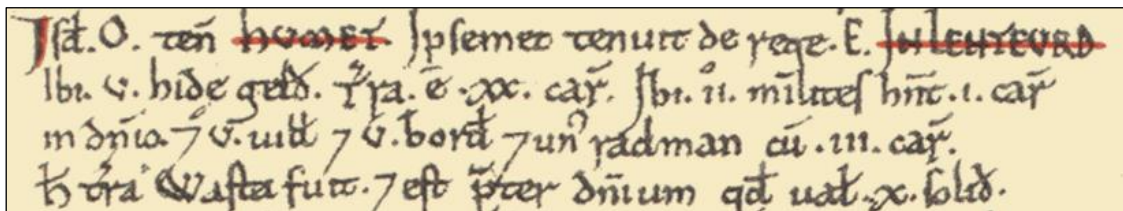 Isđ. O. teñ HUMET. Ipsemet tenuit de rege. E. IN LENTEURD
Ibi. v. hide gelđ. Tr̃a. ē .xx. car̃. Ibi. ii. milites hñt .i. car̃
in dñio. ⁊ v. uiłł ⁊ v. borđ ⁊ un᾽ radman cū .iii. car̃.
H̄ tr̃a Wasta fuit. ⁊ est p̃ter dñium qđ uał .x. soliđ.